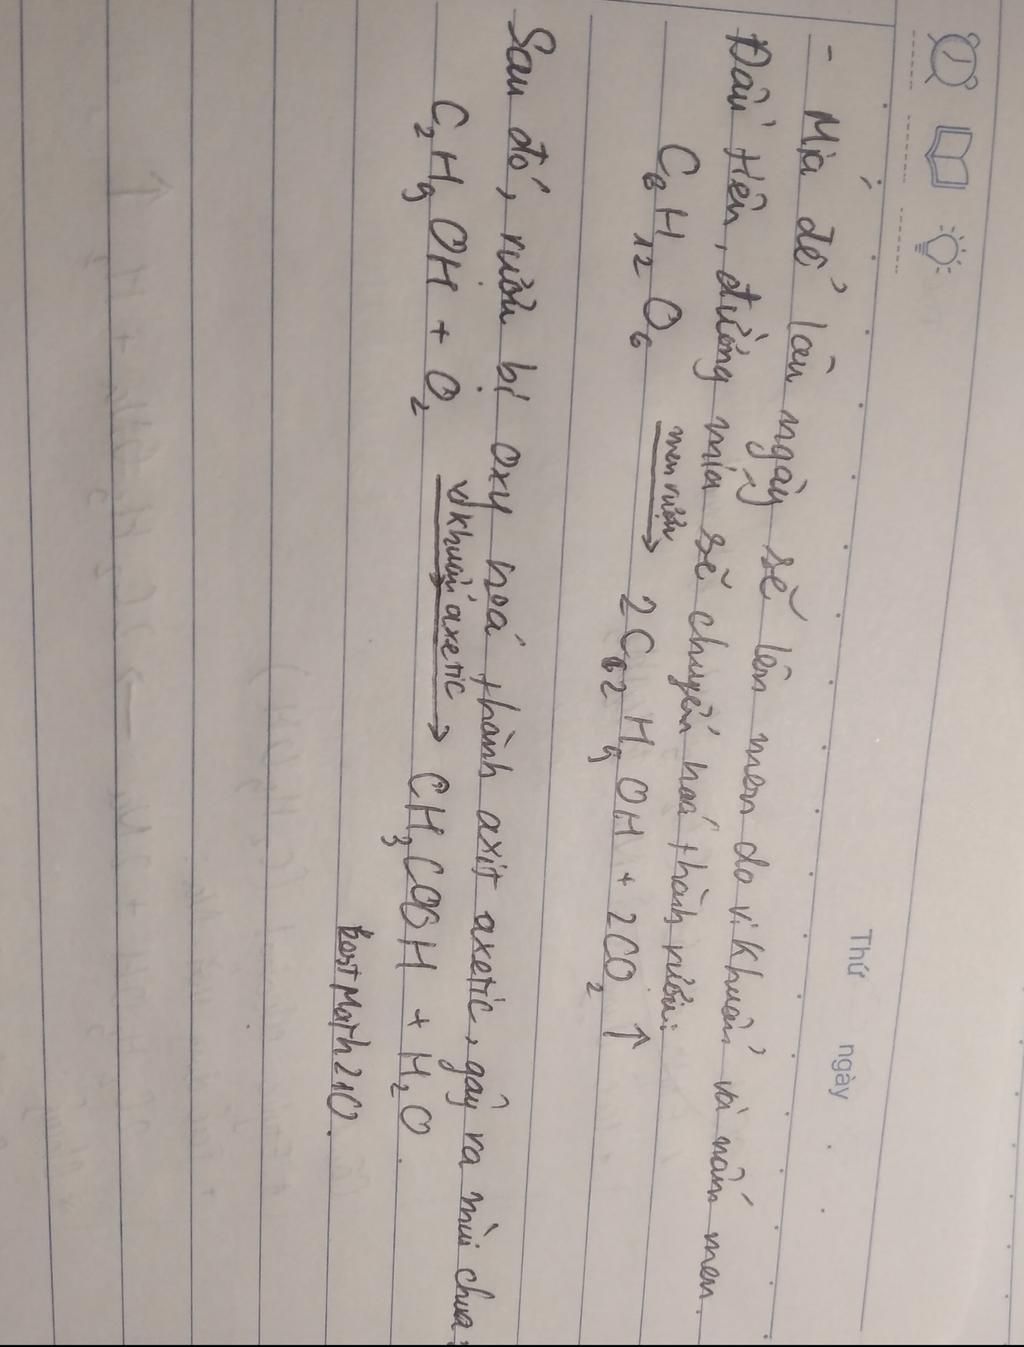 Thứ ngày
- Mía để lâu ngày sẽ lên men do vi khuẩn và nấm men.
Đầu tiên, đường mía sẽ chuyển hoá thành rượu:
C6H12O6 men rượu → 2C2H5OH + 2CO2 ↑
Sau đó, rượu bị oxy hoá thành axit axetic, gây ra mùi chua:
C2H5OH + O2 vi khuẩn axetic → CH3COOH + H2O.
BestMath210.